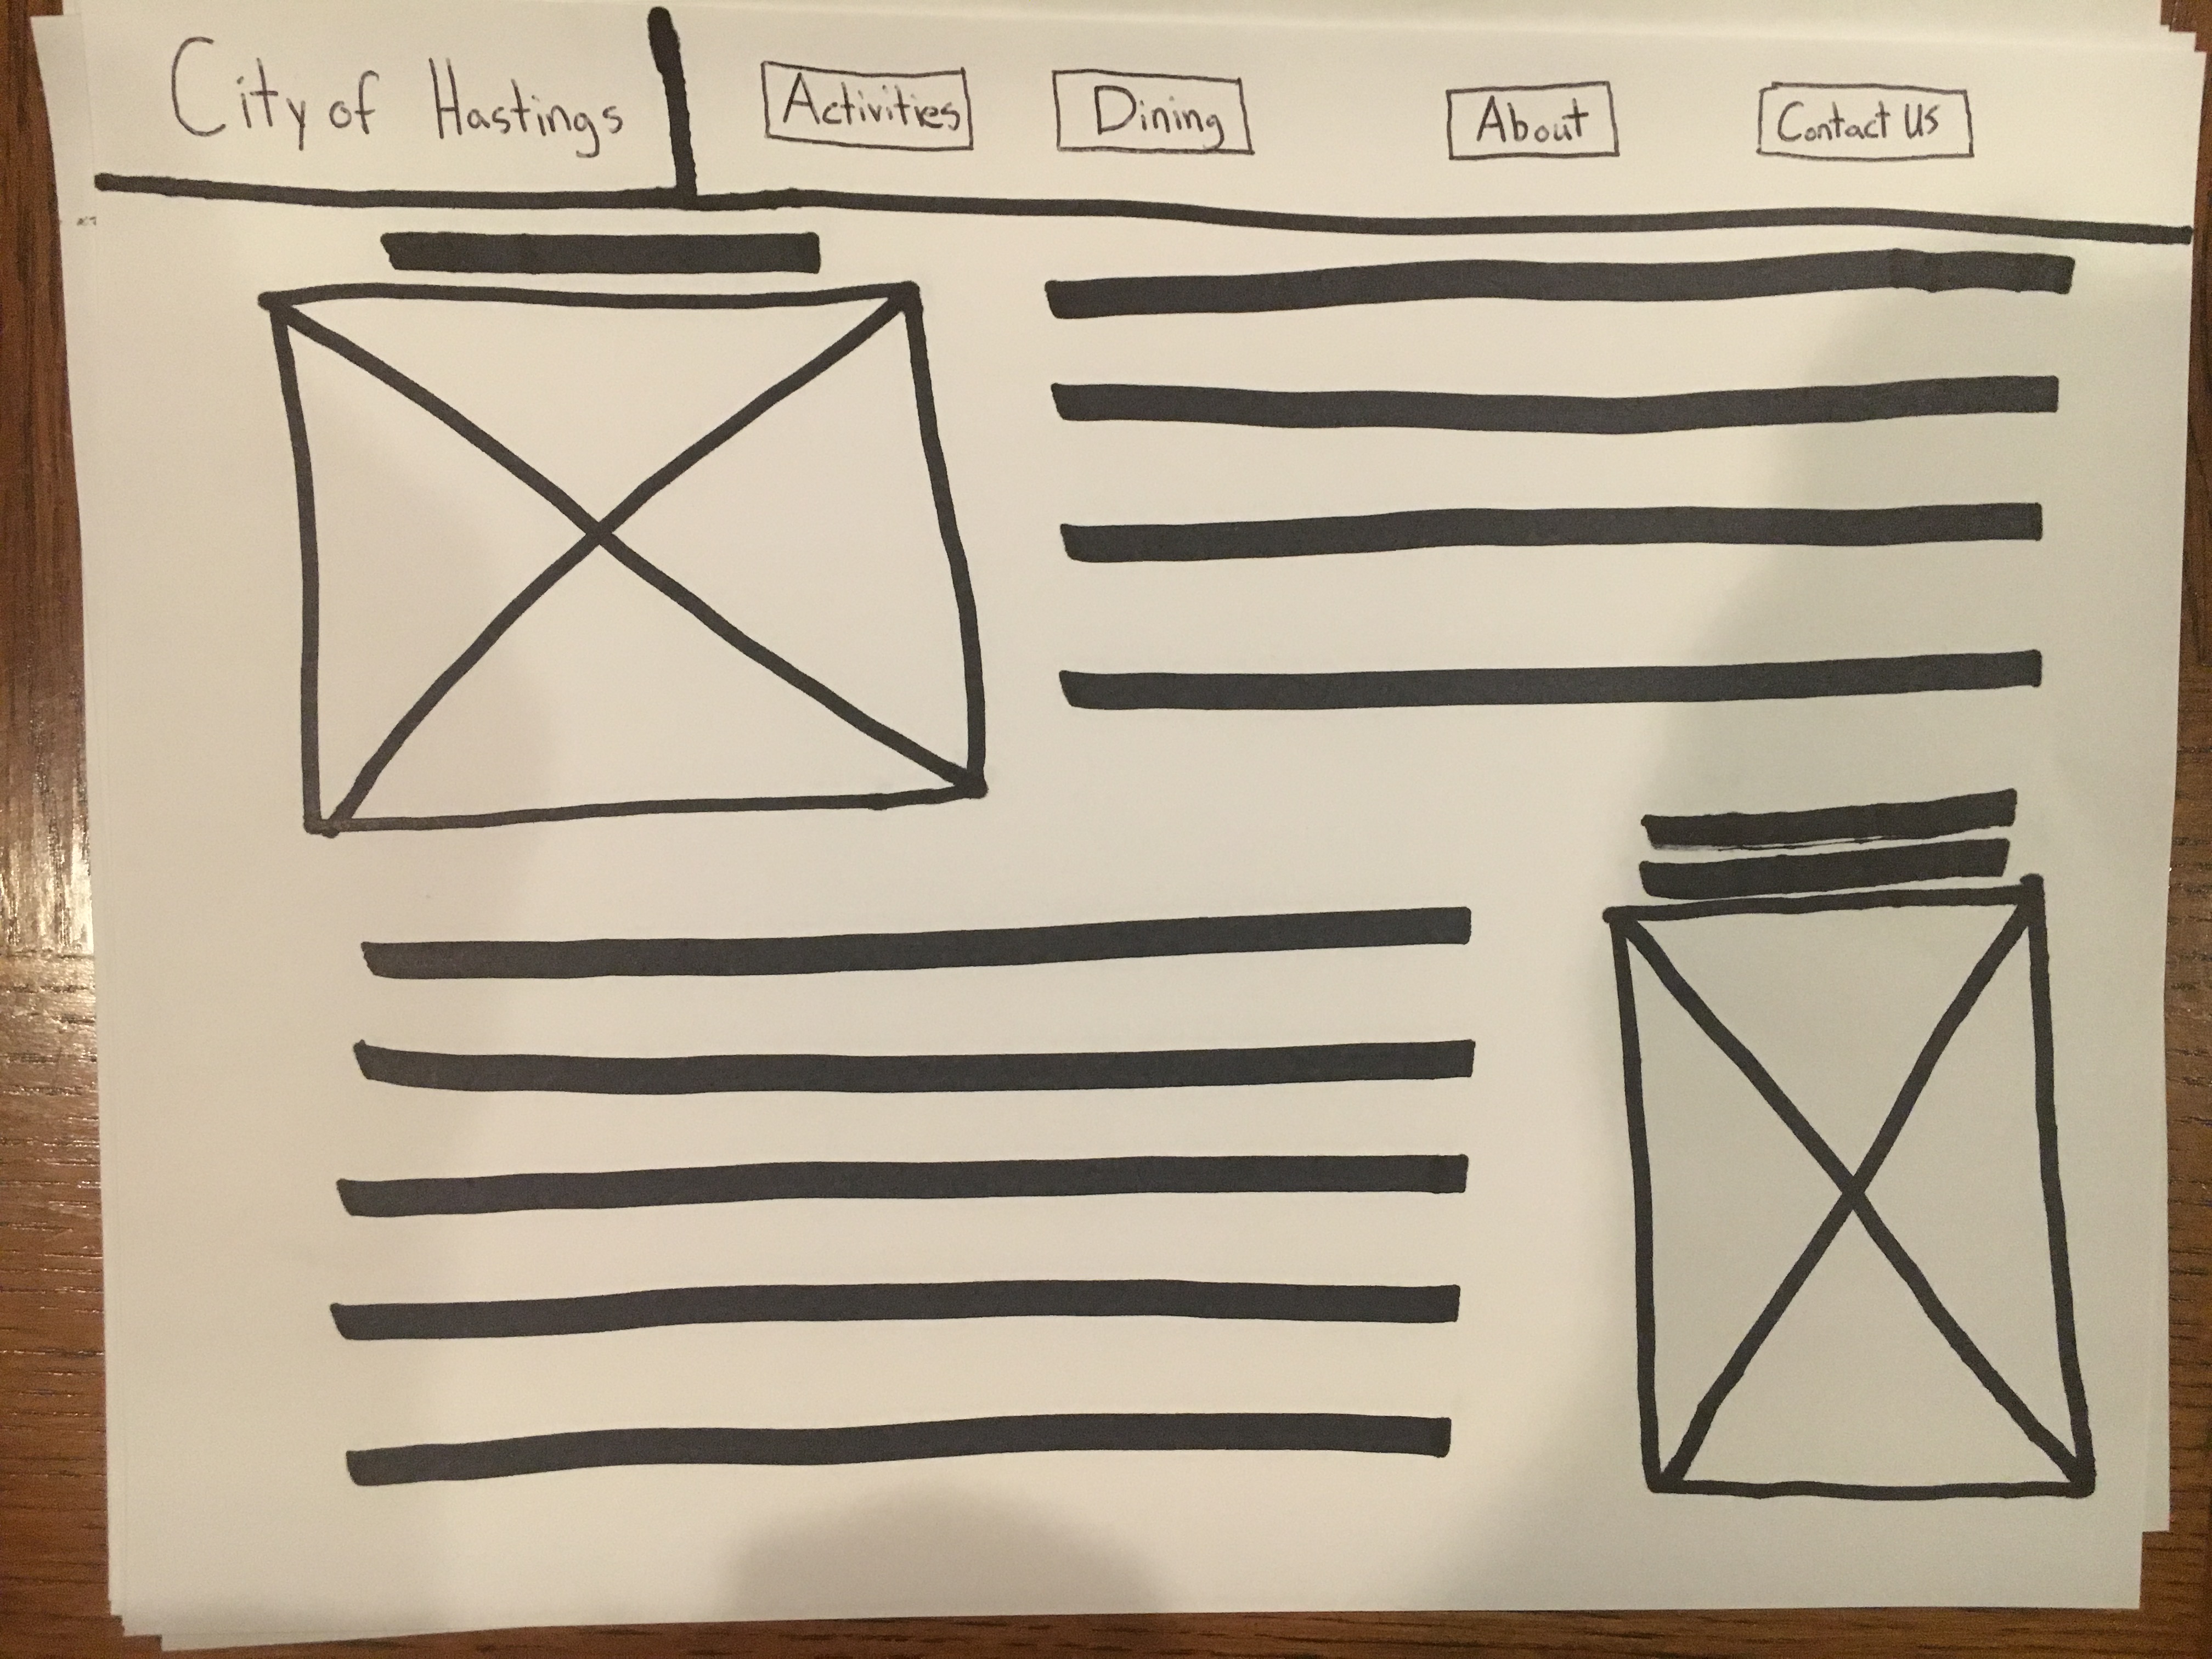 City of Hastings
Activities
Dining
About
Contact Us